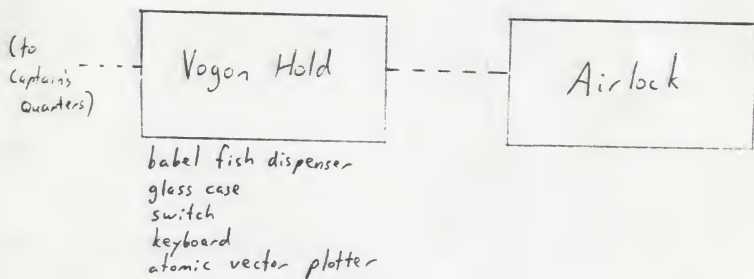 (to
Captain's
Quarters)
Vogon Hold
Airlock
babel fish dispenser
glass case
switch
keyboard
atomic vector plotter